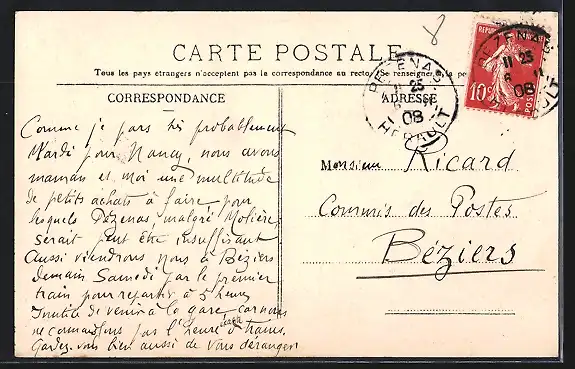 8
CARTE POSTALE
Tous les pays étrangers n'acceptent pas la correspondance au recto. (Se renseigner à la po
CORRESPONDANCE
ADRESSE
PÉZENAS
11 25
6
08
HÉRAULT
RÉPUBLIQUE
10c
POSTES
PÉZENAS
11 25
6 11
08
HÉRAULT
Comme je pars très probablement
Mardi pour Nancy, nous avons
maman et moi une multitude
de petits achats à faire pour
lesquels Pézenas, malgré Molière,
serait peut être insuffisant
Aussi viendrons nous à Béziers
demain Samedi par le premier
train pour repartir à 5 heures
Inutile de venir à la gare car nous
ne connaissons pas l'heure des trains.
Gardez-vous bien aussi de vous déranger
Monsieur Ricard
Commis des Postes
Béziers